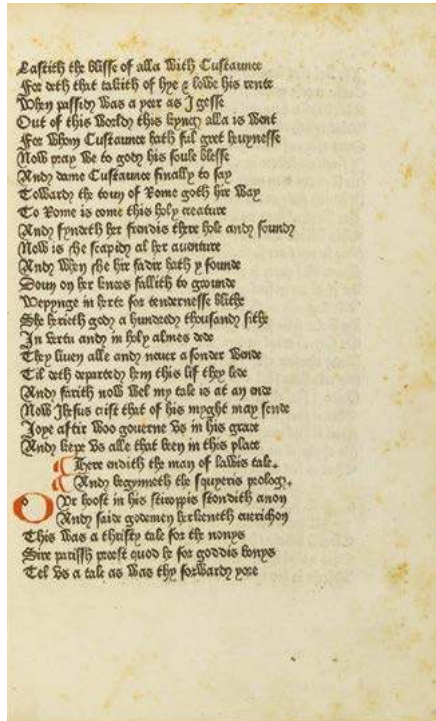 Lastith the blisse of alla With Custaunce
For deth that takith of hye & lowe his rente
When passid Was a yeer as I gesse
Out of this World this kyng alla is Went
For Whom Custaunce hath ful gret heuynesse
Now pray We to god his soule blesse
And dame Custaunce finally to say
Toward the toun of Rome goth hir Way
To Rome is come this holy creature
And fyndeth her frendis there hole and sound
Now is she scapid al her auenture
And When she hir fadir hath y founde
Doun on her knees fallith to grounde
Wepynge in herte for tendernesse blithe
She herieth god a hundred thousand sithe
In vertu and in holy almes dede
They liuen alle and neuer a sonder Wende
Til deth departed hem this lif they lede
And farith now Wel my tale is at an ende
Now Ihesus crist that of his myght may sende
Ioye aftir Woo gouerne vs in his grace
And kepe vs alle that been in this place
There endith the man of lawis tale.
And begynneth the squyeris prolog.
OUr hoost in his stiroppis stondith anon
And saide goodemen herkeneth euerichon
This Was a thrifty tale for the nonys
Sire parissh preest quod he for goddis bonys
Tel vs a tale as Was thy forward yore